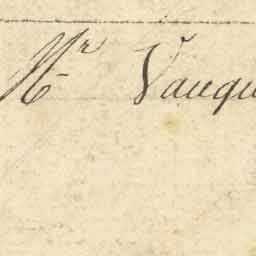 Mr Vauqu